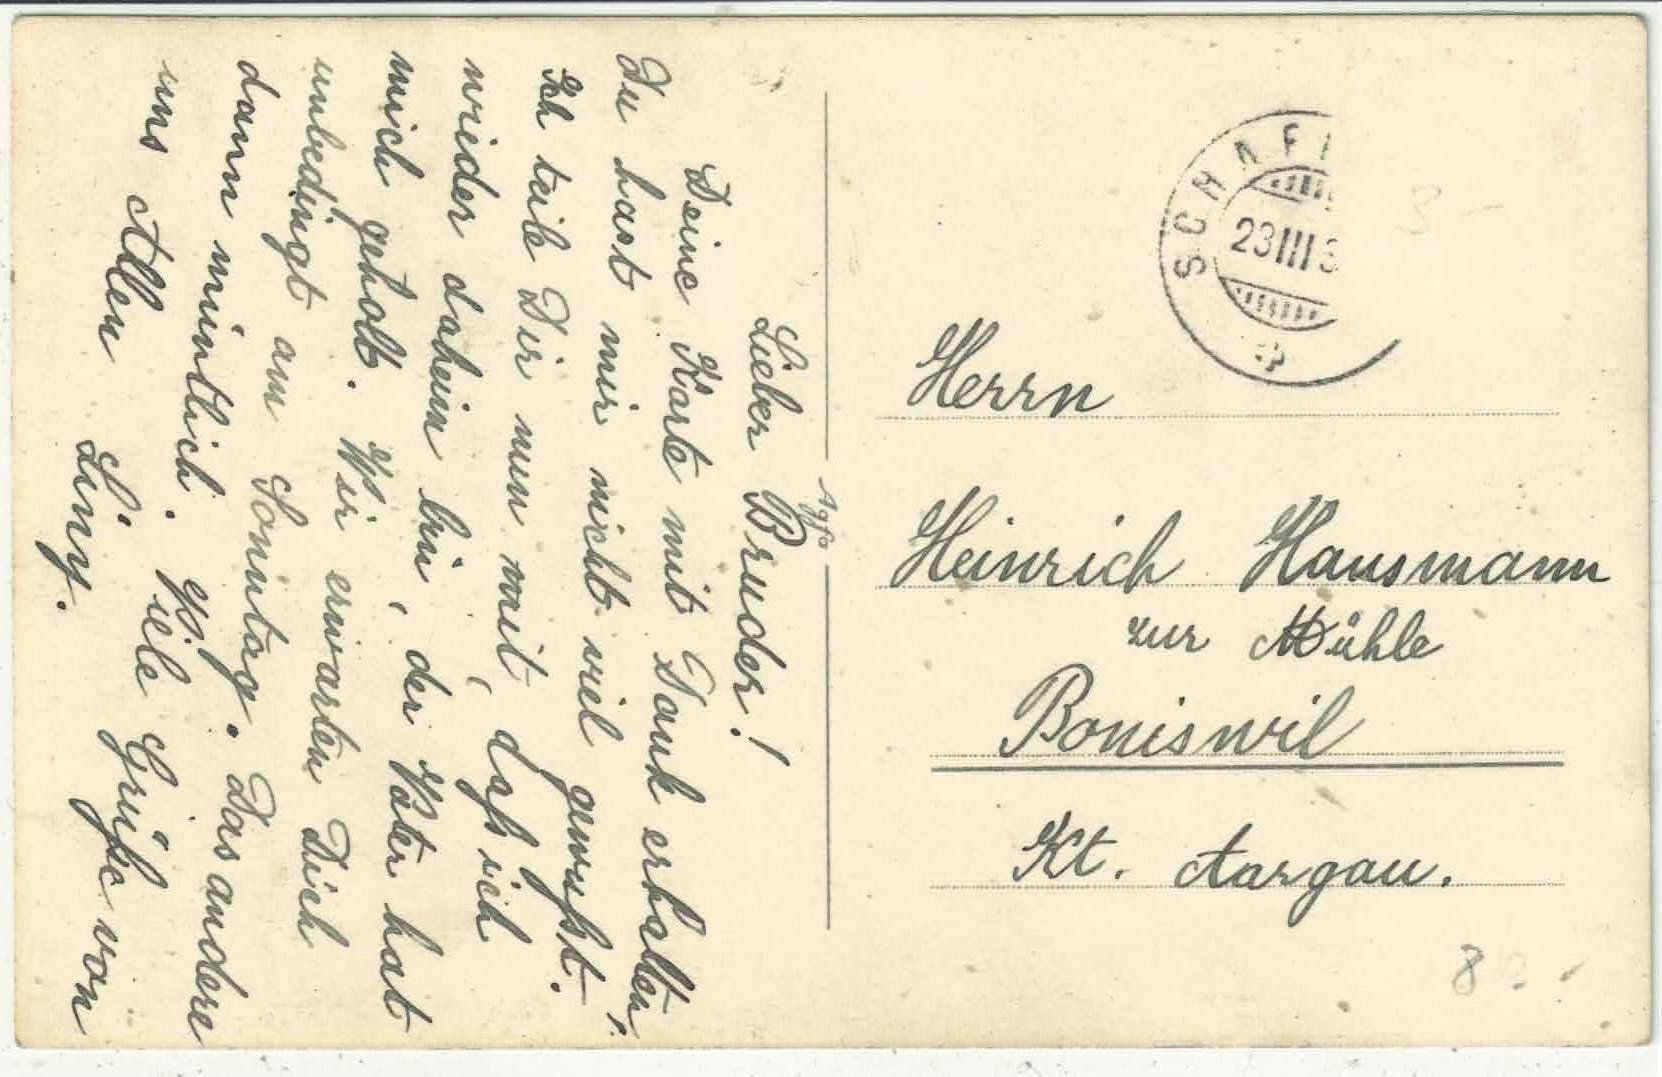 Lieber Bruder!
Deine Karte mit Dank erhalten,
Du hast mir nicht viel gewußt.
Ich teile Dir nun mit, daß ich
wieder daheim bin, der Vater hat
mich geholt. Wir erwarten Dich
unbedingt am Sonntag. Das andere
dann mündlich. Viele Grüße von
uns Allen Liny.
Agfa
SCHAFI
23 III 3
Herrn
Heinrich Hausmann
zur Mühle
Boniswil
Kt. Aargau.
8